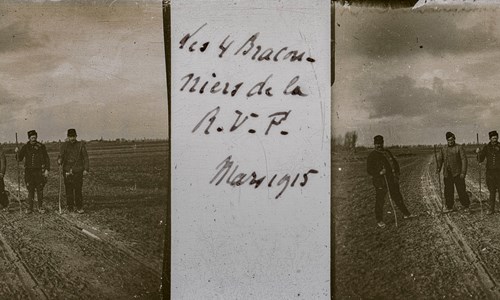 Les 4 Bracon-
niers de la
R.V.F.
Mars 1915